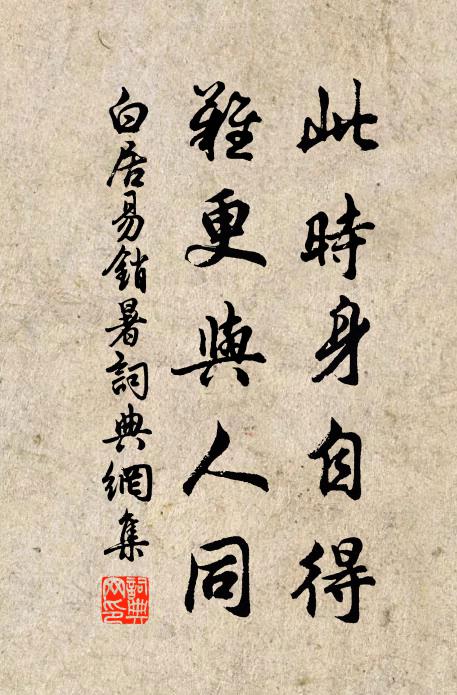 此時身自得
難更與人同
白居易銷暑詞典網集
詞典網印